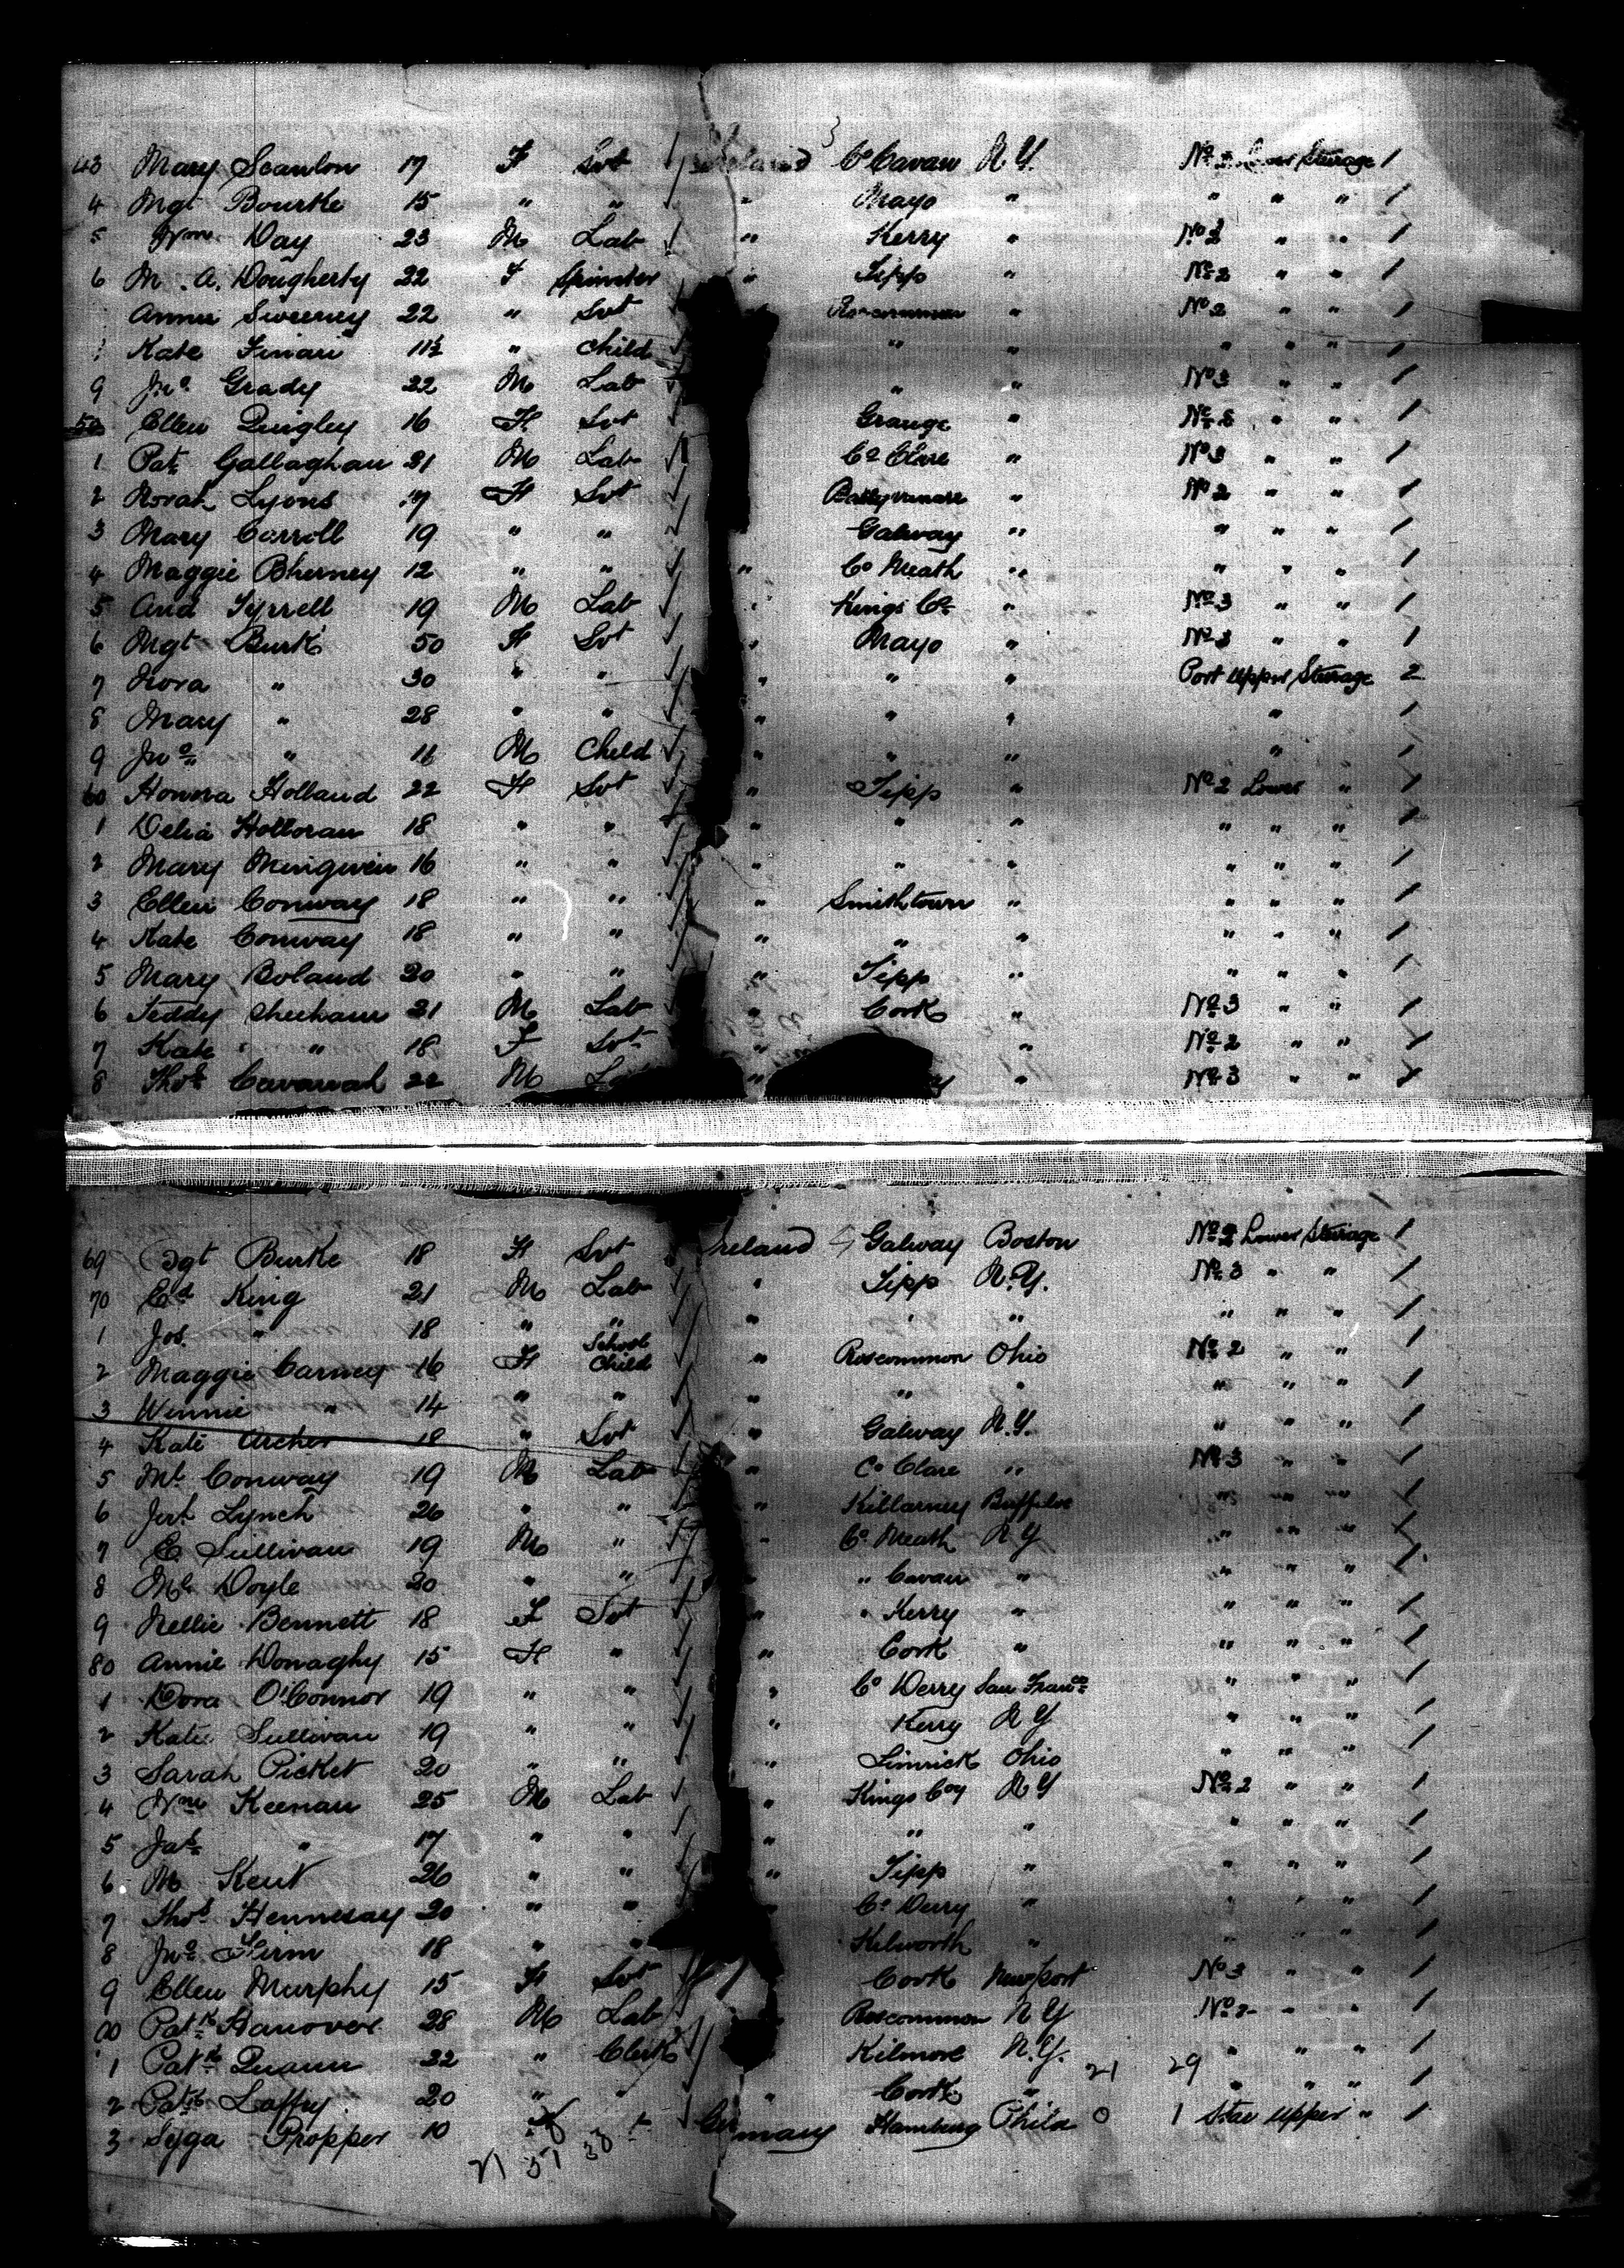 43 Mary Scanlon 17 F Svt Ireland Co Cavan N.Y. No 2 Lower Steerage 1
4 Mgt Bourke 15 " " " Mayo " " " " 1
5 Wm Day 23 M Lab " Kerry " No 2 " " 1
6 M. A. Dougherty 22 F Spinster " Tipp " No 2 " " 1
Annie Sweeney 22 " Svt Roscommon " No 2 " " 1
Kate Finari 11½ " Child " " " " " 1
9 Jno. Grady 22 M Lab " " No 3 " " 1
50 Ellen Quigley 16 F Svt Grange " No " " 1
1 Pat Gallaghan 21 M Lab Co Clare " No 3 " " 1
2 Norah Lyons 17 F Svt " No 2 " " 1
3 Mary Carroll 19 " " Galway " " " " 1
4 Maggie 12 " " " Co Meath " " " " 1
5 And Tyrrell 19 M Lab " Kings Co " No 3 " " 1
6 Mgt Burk 50 F Svt " Mayo " No 3 " " 1
7 Nora " 30 " " " " " Port Upper Steerage 2
8 Mary " 28 " " " " " " 1
9 Jno " 11 M Child " " " " 1
60 Honora Holland 22 F Svt " Tipp " No 2 Lower " 1
1 Delia Holloran 18 " " " " " " " " 1
2 Mary 16 " " " " " " " " 1
3 Ellen Conway 18 " " " Smithtown " " " " 1
4 Kate Conway 18 " " " " " " " " 1
5 Mary Boland 20 " " " Tipp " " " " 1
6 Teddy Sheehan 21 M Lab " Cork " No 3 " " 1
7 Kate " 18 F Svt " " No 2 " " 1
8 Thos Cavanah 22 M " " No 3 " " 1
69 Mgt Burke 18 F Svt Ireland Galway Boston No 2 Lower Steerage 1
70 Ed King 21 M Lab " Tipp N.Y. No 3 " " 1
1 Jos. " 18 " " " " " " " " 1
2 Maggie Carney 16 F School Child " Roscommon Ohio No 2 " " 1
3 Winnie " 14 " " " " " " " " 1
4 Kate Archer 18 " Svt " Galway N.Y. " " " 1
5 Ml Conway 19 M Lab " Co Clare " No 3 " " 1
6 Jerh Lynch 26 " " " Killarney Buffaloe " " " 1
7 E. Sullivan 19 M " " Co Meath N Y " " " 1
8 Ml Doyle 20 " " " " Cavan " " " " 1
9 Nellie Bennett 18 F Svt " " Kerry " " " " 1
80 Annie Donaghy 15 F " " Cork " " " " 1
1 Dora O'Connor 19 " " " Co Derry San Franco " " " 1
2 Kate Sullivan 19 " " " Kerry N Y " " " 1
3 Sarah Picket 20 " " " Limrick Ohio " " " 1
4 Wm Keenan 25 M Lab " Kings Coy N Y No 2 " " 1
5 Jas " 17 " " " " " " " " 1
6 M Kent 26 " " " Tipp " " " " 1
7 Thos Hennesay 20 " " " Co Derry " " " " 1
8 Jno 18 " " Kilworth " " " " 1
9 Ellen Murphy 15 F Svt Cork Newport No 3 " " 1
90 Patk Hanover 28 M Lab Roscommon N Y No 2 " " 1
1 Patk Quann 22 " Clerk Kilmore N.Y. " " " 1
2 Patk Laffey 20 " " " Cork " 21 29 " " " 1
3 Propper 10 Germany Hamburg Phila 0 1 Star Upper " 1
21 51 38